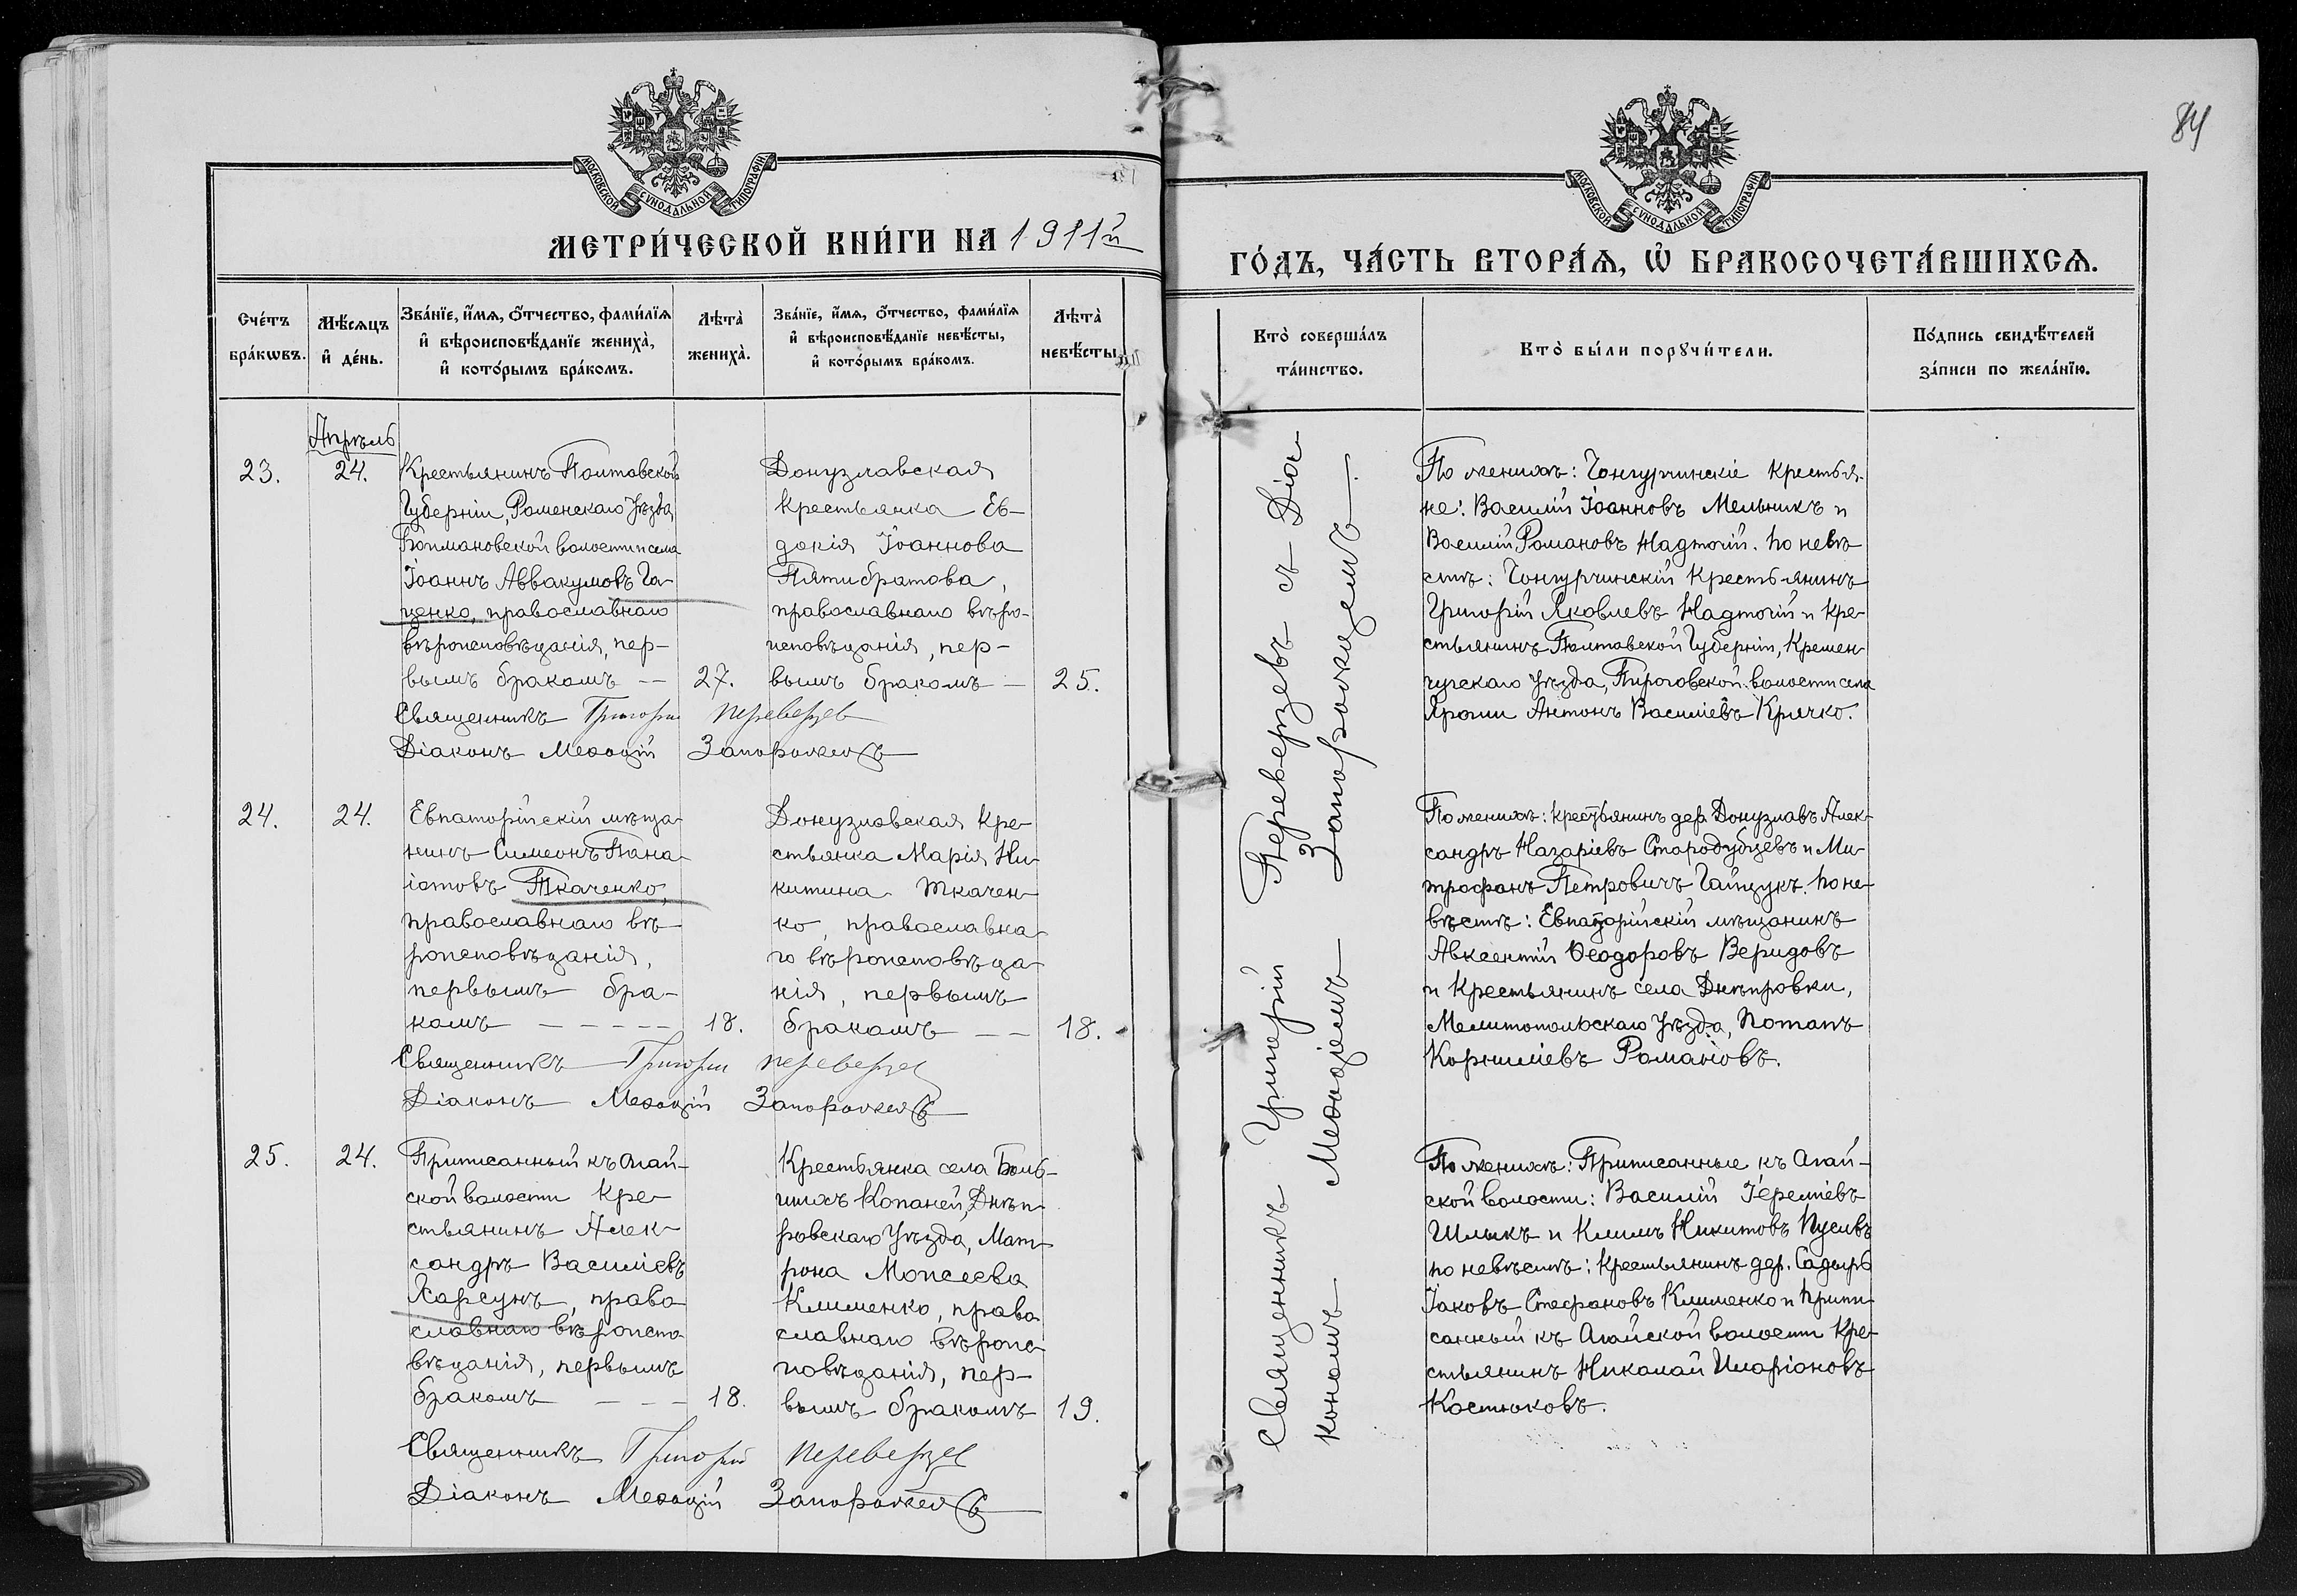 84
МОСКОВСКОЙ СѴНОДАЛЬНОЙ ТИПОГРАФІИ
МЕТРИ́ЧЕСКОЙ КНИ́ГИ НА 1911й
Сче́тъ бра́кωвъ.
Мѣ́сяцъ и҆ де́нь.
Зва́нїе, и҆́мѧ, ѻ҆́тчество, фами́лїѧ
и҆ вѣроисповѣ́данїе жениха̀,
и҆ кото́рымъ бра́комъ.
Лѣта̀ жениха̀.
Зва́нїе, и҆́мѧ, ѻ҆́тчество, фами́лїѧ
и҆ вѣроисповѣ́данїе невѣ́сты,
и҆ кото́рымъ бра́комъ.
Лѣта̀ невѣ́сты
Апрѣль
23.
24.
Крестьянинъ Полтавской
Губерніи, Роменскаго Уѣзда,
волости и села
Іоаннъ Аввакумовъ Га-
ценко, православнаго
вѣроисповѣданія, пер-
вымъ бракомъ —
27.
Донузлавская
крестьянка Ев-
докія Іоаннова
Пятибратова,
православнаго вѣро-
исповѣданія, пер-
вымъ бракомъ —
25.
Священникъ Григорій Переверзев
Діаконъ Меѳодій Запорожецъ
24.
24.
Евпаторійскій мѣща-
нинъ Симеонъ Пана-
іотовъ Ткаченко,
православнаго вѣ-
роисповѣданія,
первымъ бра-
комъ — — — —
18.
Донузлавская кре-
стьянка Марія Ни-
китина Ткачен-
ко, православна-
го вѣроисповѣда-
нія, первымъ
бракомъ — —
18.
Священникъ Григорій Переверзев
Діаконъ Меѳодій Запорожецъ
25.
24.
Приписанный къ Агай-
ской волости кре-
стьянинъ Алек-
сандръ Василіевъ
Харсунъ, право-
славнаго вѣроиспо-
вѣданія, первымъ
бракомъ — — —
18.
Крестьянка села Боль-
шихъ Копаней, Днѣп-
ровскаго Уѣзда, Мат-
рона Моисеева
Клименко, право-
славнаго вѣроис-
повѣданія, пер-
вымъ бракомъ
19.
Священникъ Григорій Переверзев
Діаконъ Меѳодій Запорожецъ
МОСКОВСКОЙ СѴНОДАЛЬНОЙ ТИПОГРАФІИ
ГО́ДЪ, ЧА́СТЬ ВТОРА́Ѧ, Ѡ҆ БРАКОСОЧЕТА́ВШИХСѦ.
Кто̀ соверша́лъ
та́инство.
Кто̀ бы́ли порꙋчи́тели.
По́дпись свидѣ́телей
за́писи по жела́нїю.
Священникъ Григорій Переверзевъ съ Діа-
кономъ Меѳодіемъ Запорожцемъ —
По женихѣ: Чонгурчинскіе крестья-
не: Василій Іоанновъ Мельникъ и
Василій Романовъ Надточій. По невѣ-
стѣ: Чонгурчинскій крестьянинъ
Григорій Яковлевъ Надточій и кре-
стьянинъ Полтавской Губерніи, Кремен-
чугскаго Уѣзда, Пироговской волости села
Антонъ Василіевъ Крячко.
По женихѣ: крестьянинъ дер. Донузлавъ Алек-
сандръ Назаріевъ Стародубцевъ и Ми-
трофанъ Петровичъ Гайщукъ. По не-
вѣстѣ: Евпаторійскій мѣщанинъ
Авксентій Ѳеодоровъ Веридовъ
и крестьянинъ села Днѣпровки,
Мелитопольскаго Уѣзда, Потапъ
Корниліевъ Романовъ.
По женихѣ: Приписанные къ Агай-
ской волости: Василій Іереміевъ
Шлыкъ и Климъ Никитовъ Гусивъ
по невѣстѣ: крестьянинъ дер. Садыръ
Іаковъ Стефановъ Клименко и припи-
санный къ Агайской волости кре-
стьянинъ Николай Иларіоновъ
Костюковъ.